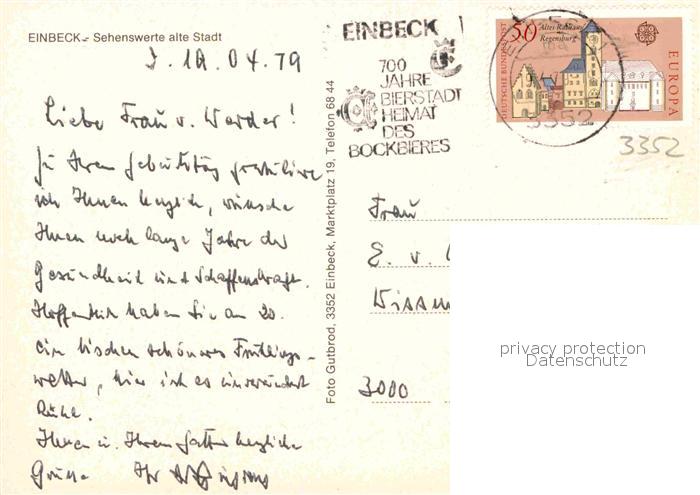 EINBECK - Sehenswerte alte Stadt
18.04.79
Liebe Frau v. Werder!
Zu Ihrem Geburtstag gratuliere
ich Ihnen herzlich, wünsche
Ihnen noch lange Jahre der
Gesundheit und Schaffenskraft.
Hoffentlich haben Sie am 20.
ein bischen schöneres Frühlings-
wetter, hier ist es unverändert
kühl.
Ihnen u. Ihrem Gatten herzliche
Grüsse Ihr
Foto Gutbrod, 3352 Einbeck, Marktplatz 19, Telefon 68 44
EINBECK
700
JAHRE
BIERSTADT
HEIMAT
DES
BOCKBIERES
DEUTSCHE BUNDESPOST
50
Altes Rathaus
Regensburg
EUROPA
3352
3352
Frau
E. v.
3000
privacy protection
Datenschutz